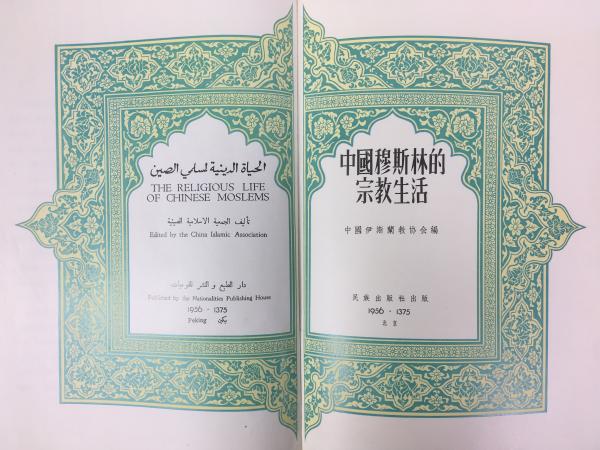 الحياة الدينية لمسلمي الصين
THE RELIGIOUS LIFE
OF CHINESE MOSLEMS
تأليف الجمعية الاسلامية الصينية
Edited by the China Islamic Association
دار الطبع و النشر للقوميات
Published by the Nationalities Publishing House
1956 · 1375
Peking بكين
中國穆斯林的
宗教生活
中國伊斯蘭教协会編
民族出版社出版
1956 · 1375
北京